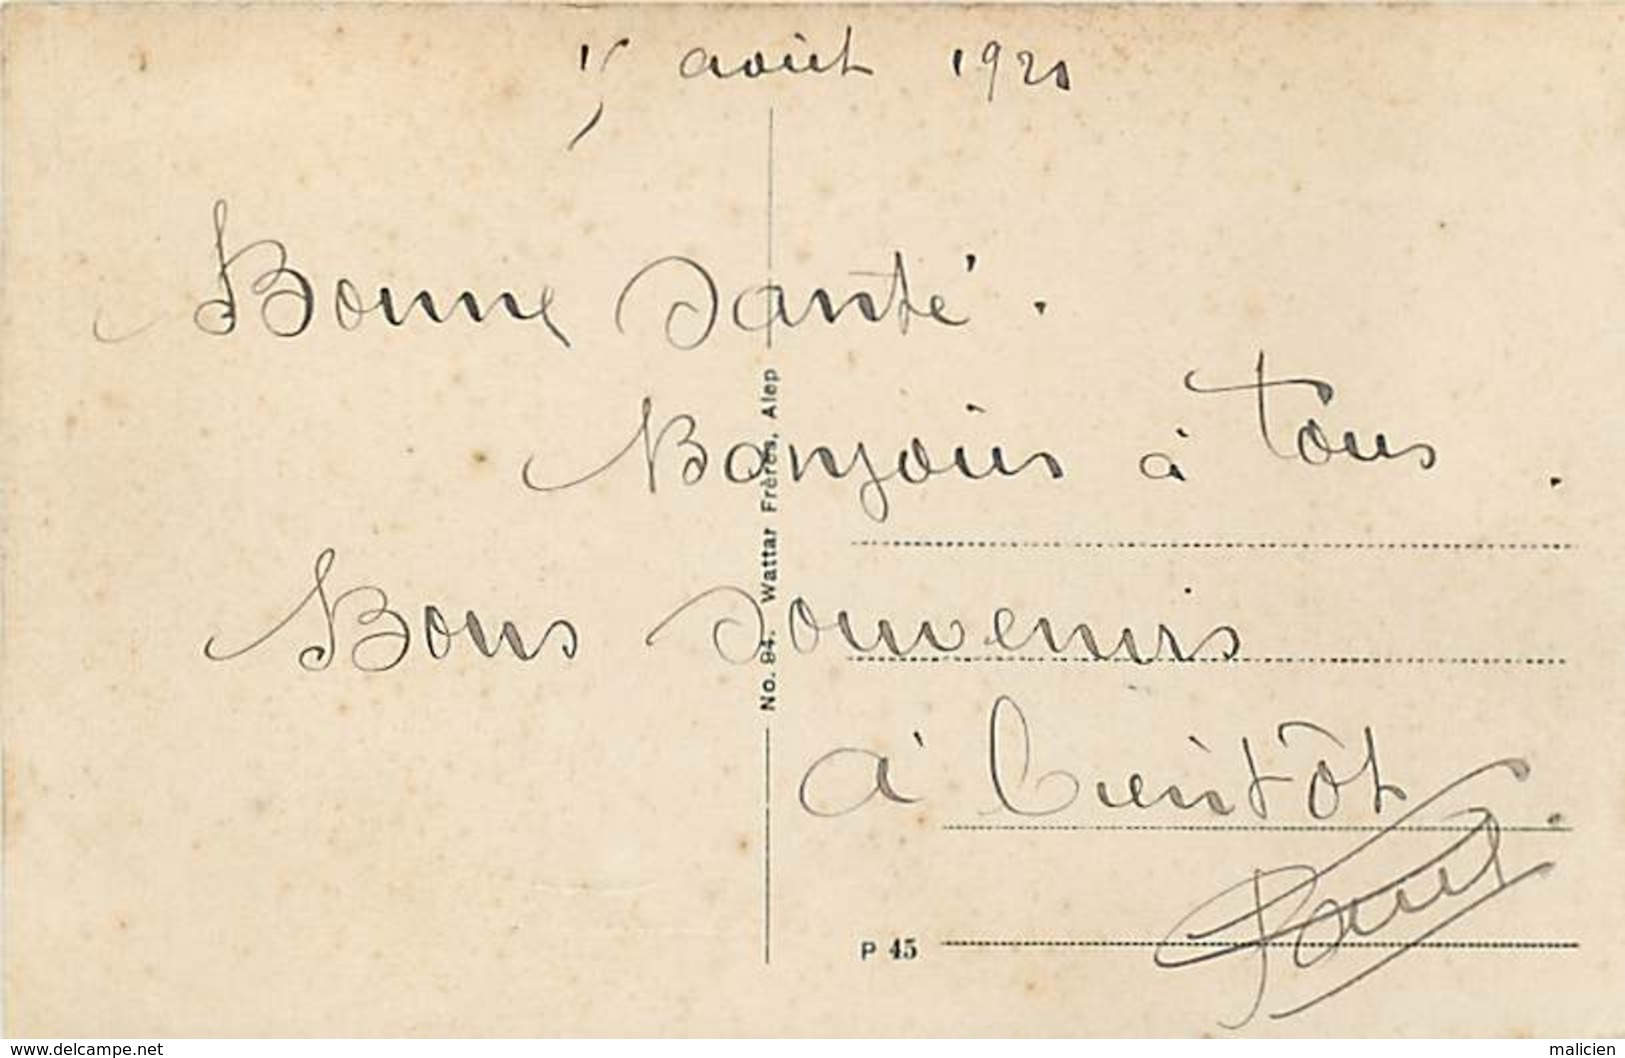 août 1920
Bonne Santé.
Bonjours à tous.
Bons souvenirs
à bientôt.
Paul
No. 94. Wattar Frères, Alep
P 45
www.delcampe.net
malicien